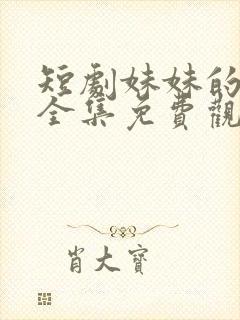 短劇妹妹的
全集免費觀
肖大寶